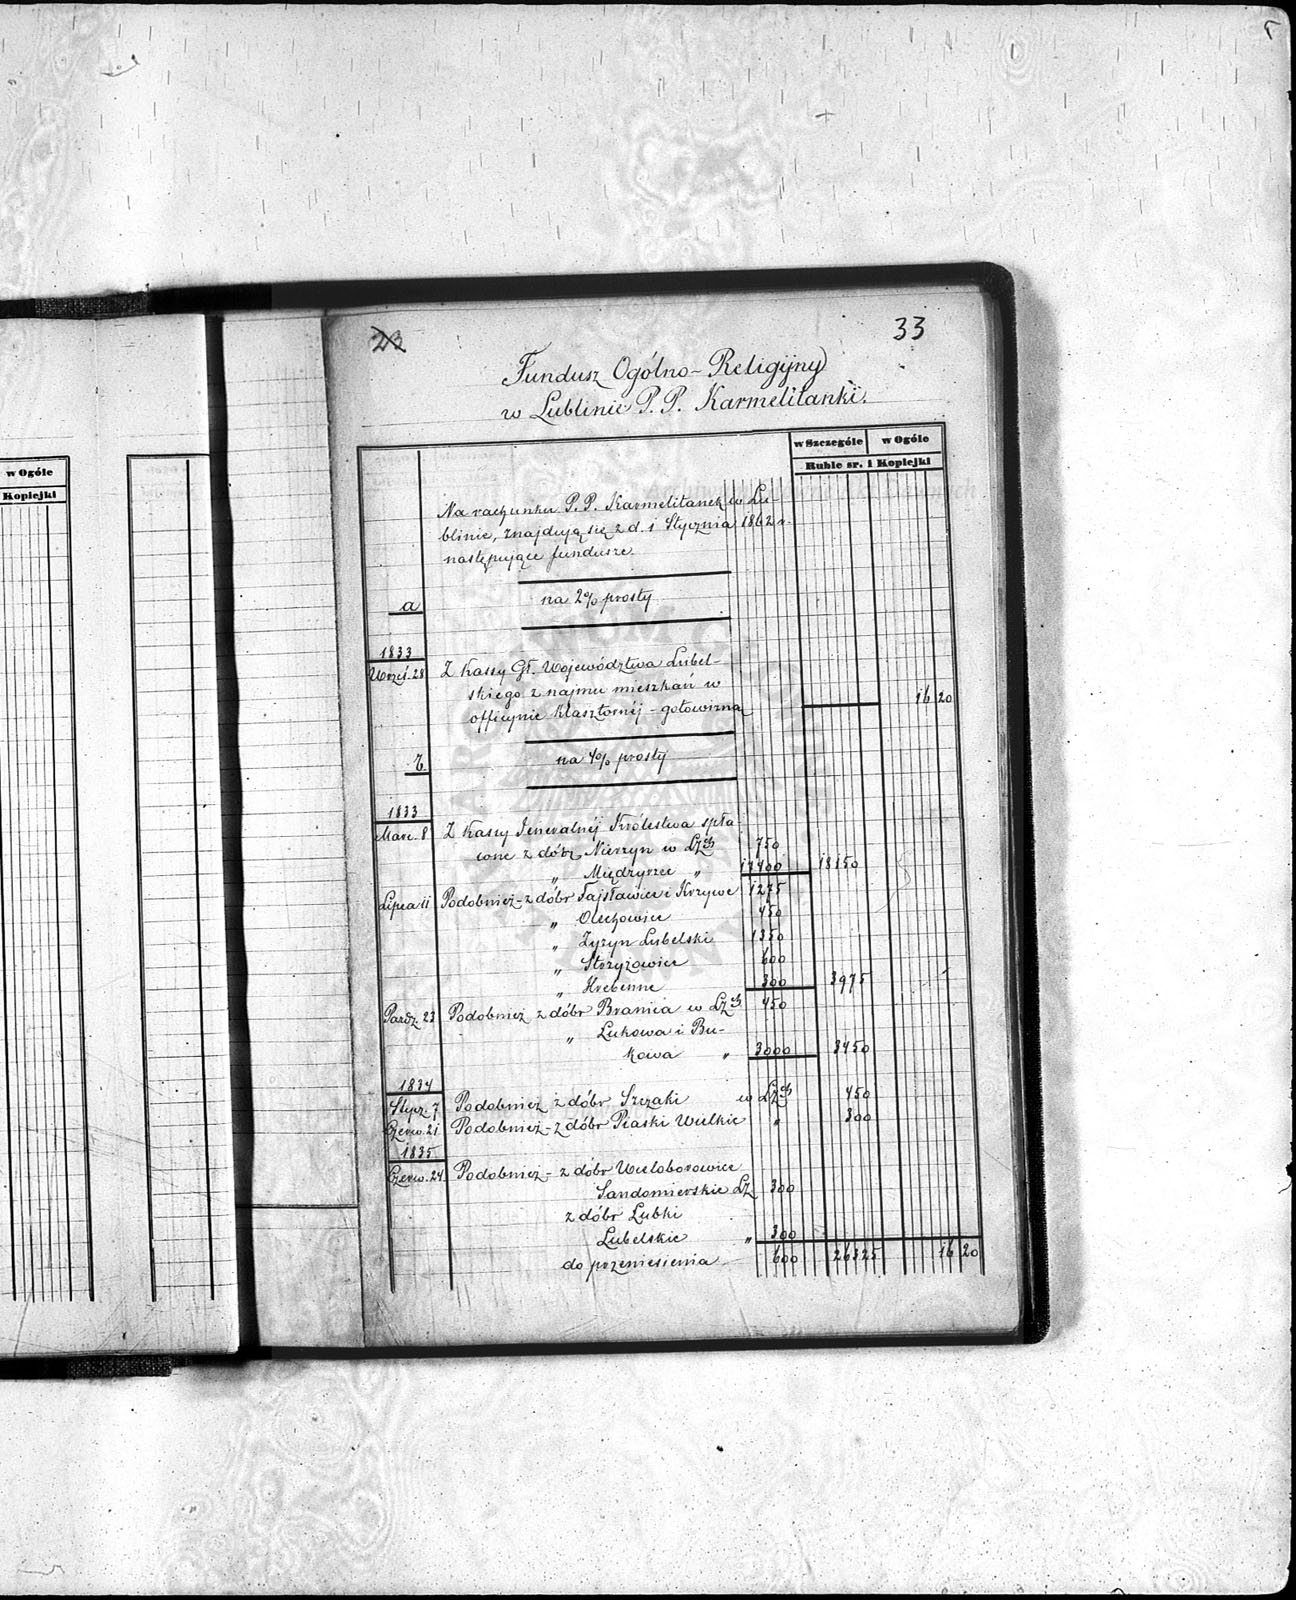 w Ogóle
Kopiejki
23
33
Fundusz Ogólno-Religijny
w Lublinie P. P. Karmelitanki.
w Szczególe w Ogóle
Ruble sr. i Kopiejki
Na rachunku P. P. Karmelitanek w Lu-
blinie, znajdują się z d. 1 Stycznia 1862 r.
następujące fundusze.
a na 2% prosty
1833
Wrześ. 28 Z Kassy Gł. Województwa Lubel-
skiego z najmu mieszkań w
officynie klasztornéj - gotowizną 16 20
b. na 4% prosty
1833
Marc. 8 Z Kassy Jeneralnéj Królestwa spła
cone z dóbr Nierzyn w LZch 750
„ Międzyrzec „ 17400 18150
Lipca 11 Podobnież - z dóbr Fajsławice i Krzywe 1275
„ Olechowice 450
„ Żyrzyn Lubelski 1350
„ Strzyżowice 600
„ Hrebenne 300 3975
Paźdz. 23 Podobnież z dóbr Brania w LZch 450
„ Lukowa i Bu-
kowa „ 3000 3450
1834
Stycz. 7 Podobnież z dóbr Szczaki w LZch 450
Czerw. 21 Podobnież - z dóbr Piaski Wielkie „ 300
1835
Czerw. 24. Podobnież - z dóbr Wieloborowice
Sandomierskie LZ 300
z dóbr Lubki
Lubelskie „ 300
do przeniesienia 600 26325 16 20